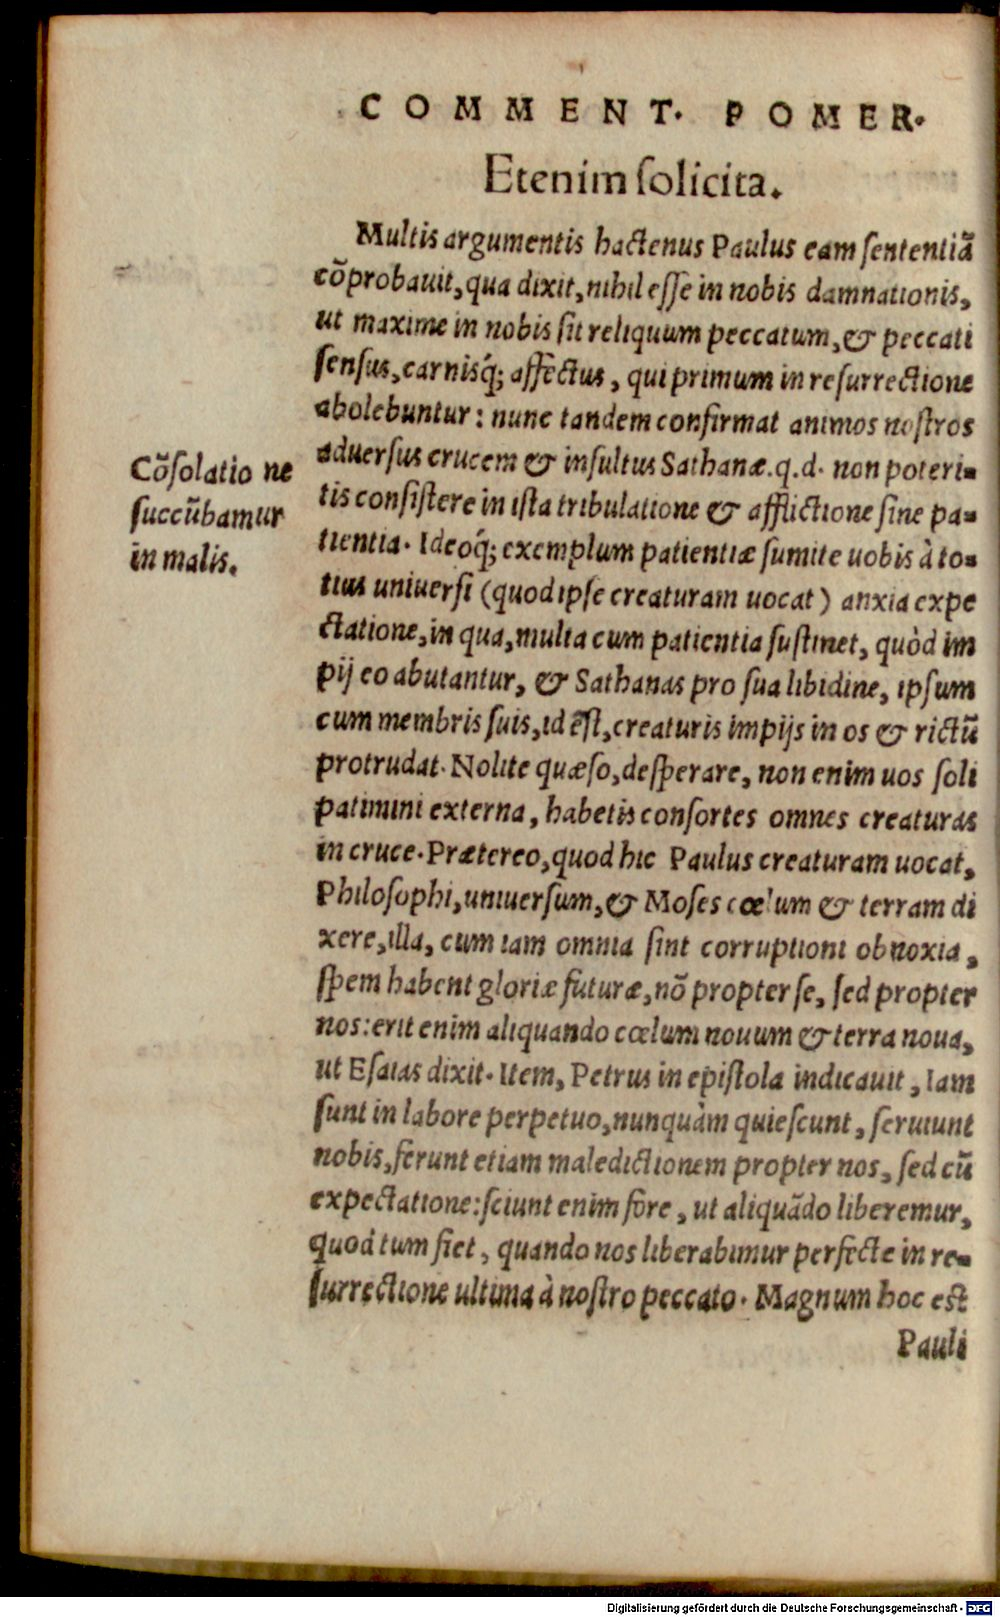 COMMENT. POMER.
Etenim ſolicita.
Multis argumentis hactenus Paulus eam ſententiã
cõprobauit, qua dixit, nihil eſſe in nobis damnationis,
ut maxime in nobis ſit reliquum peccatum, & peccati
ſenſus, carnisq́; affectus, qui primum in reſurrectione
abolebuntur: nunc tandem confirmat animos noſtros
aduerſus crucem & inſultus Sathanæ. q. d. non poteri-
tis conſiſtere in iſta tribulatione & afflictione ſine pa-
tientia. Ideoq́; exemplum patientiæ ſumite uobis à to-
tius uniuerſi (quod ipſe creaturam uocat) anxia expe
ctatione, in qua, multa cum patientia ſuſtinet, quòd im
pij eo abutantur, & Sathanas pro ſua libidine, ipſum
cum membris ſuis, id eſt, creaturis impijs in os & rictũ
protrudat. Nolite quæſo, deſperare, non enim uos ſoli
patimini externa, habetis conſortes omnes creaturas
in cruce. Prætereo, quod hic Paulus creaturam uocat,
Philoſophi, uniuerſum, & Moſes cœlum & terram di
xere, illa, cum iam omnia ſint corruptioni obnoxia,
ſpem habent gloriæ futuræ, nõ propter ſe, ſed propter
nos: erit enim aliquando cœlum nouum & terra noua,
ut Eſaias dixit. Item, Petrus in epiſtola indicauit, Iam
ſunt in labore perpetuo, nunquàm quieſcunt, ſeruiunt
nobis, ferunt etiam maledictionem propter nos, ſed cũ
expectatione: ſciunt enim fore, ut aliquãdo liberemur,
quod tum fiet, quando nos liberabimur perfecte in re-
ſurrectione ultima à noſtro peccato. Magnum hoc est
Pauli
Cõſolatio ne
ſuccũbamur
in malis.
Digitalisierung gefördert durch die Deutsche Forschungsgemeinschaft - DFG